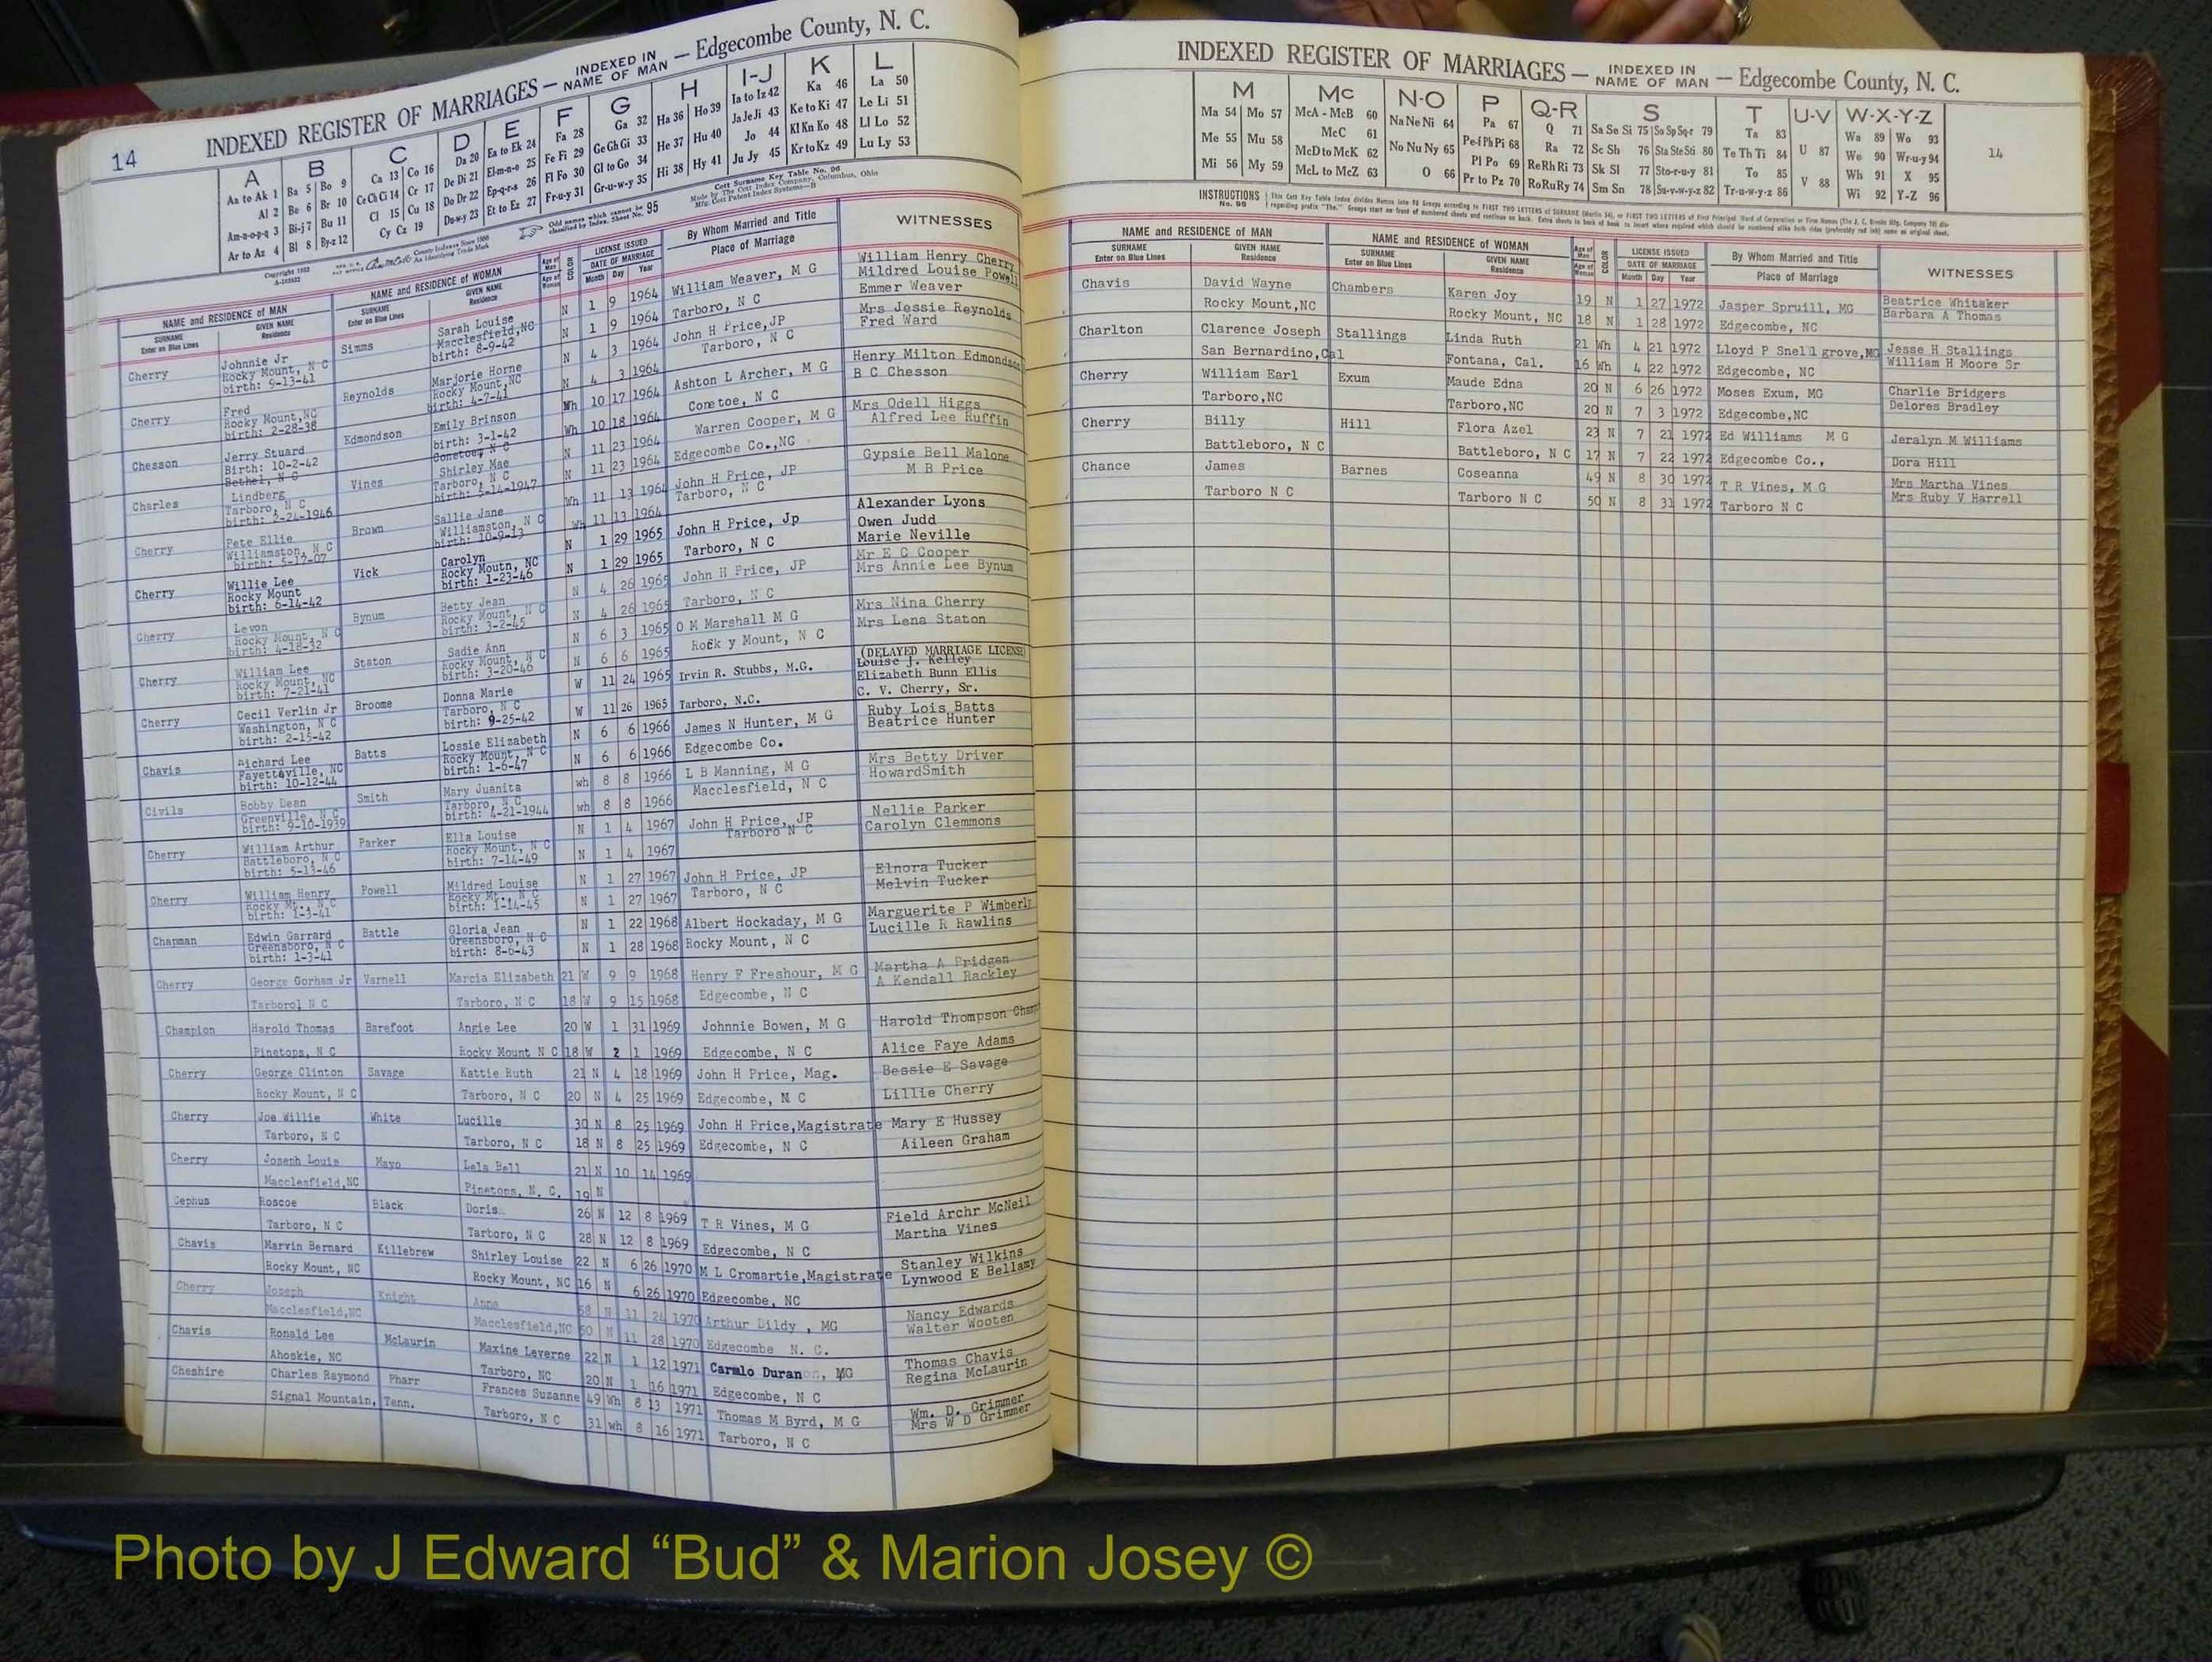 14
INDEXED REGISTER OF MARRIAGES — INDEXED IN NAME OF MAN — Edgecombe County, N. C.
A B C D E F G H I-J K L
Aa to Ak 1 Ba 5 Bo 9 Ca 13 Co 16 Da 20 Ea to Ek 24 Fa 28 Ga 32 Ha 36 Ho 39 Ia to Iz 42 Ka 46 La 50
Al 2 Be 6 Br 10 Ce Ch Ci 14 Cr 17 De Di 21 El-m-n-o 25 Fe Fi 29 Ge Gh Gi 33 He 37 Hu 40 Ja Je Ji 43 Ke to Ki 47 Le Li 51
Am-n-o-p-q 3 Bi-j 7 Bu 11 Cl 15 Cu 18 Do Dr 22 Ep-q-r-s 26 Fl Fo 30 Gl to Go 34 Hi 38 Hy 41 Jo 44 Kl Kn Ko 48 Ll Lo 52
Ar to Az 4 Bl 8 By-z 12 Cy Cz 19 Du-w-y 23 Et to Ez 27 Fr-u-y 31 Gr-u-w-y 35 Ju Jy 45 Kr to Kz 49 Lu Ly 53
Odd names which cannot be classified by Index, Sheet No. 95
Cott Surname Key Table No. 96
Made by The Cott Index Company, Columbus, Ohio
Mfg. Cott Patent Index Systems—B
NAME and RESIDENCE OF MAN NAME and RESIDENCE OF WOMAN COLOR LICENSE ISSUED By Whom Married and Title WITNESSES
SURNAME Enter on Blue Lines GIVEN NAME Residence SURNAME Enter on Blue Lines GIVEN NAME Residence Age of Man Age of Woman DATE OF MARRIAGE Month Day Year Place of Marriage
Cherry Johnnie Jr Simms Sarah Louise N 1 9 1964 William Weaver, M G William Henry Cherry
Mildred Louise Powell
Rocky Mount, N C Macclesfield,NC N 1 9 1964 Tarboro, N C Emmer Weaver
birth: 9-13-41 birth: 8-9-42
Cherry Fred Reynolds Marjorie Horne N 4 3 1964 John H Price,JP Mrs Jessie Reynolds
Rocky Mount,NC Rocky Mount,NC N 4 3 1964 Tarboro, N C Fred Ward
birth: 2-28-38 birth: 4-7-41
Chesson Jerry Stuard Edmondson Emily Brinson Wh 10 17 1964 Ashton L Archer, M G Henry Milton Edmondson
Birth: 10-2-42 birth: 3-1-42 Wh 10 18 1964 Conetoe, N C B C Chesson
Bethel, N C Conetoe, N C
Charles Lindberg Vines Shirley Mae N 11 23 1964 Warren Cooper, M G Mrs Odell Higgs
Tarboro, N C Tarboro, N C N 11 23 1964 Edgecombe Co.,NC Alfred Lee Ruffin
birth: 2-24-1946 birth: 5-14-1947
Cherry Pete Ellie Brown Sallie Jane Wh 11 13 1964 John H Price, JP Gypsie Bell Malone
Williamston, N C Williamston, N C Wh 11 13 1964 Tarboro, N C M B Price
birth: 5-17-07 birth: 10-9-13
Cherry Willie Lee Vick Carolyn N 1 29 1965 John H Price, Jp Alexander Lyons
Owen Judd
Rocky Mount Rocky Moutn, NC N 1 29 1965 Tarboro, N C Marie Neville
birth: 6-14-42 birth: 1-23-46
Cherry Levon Bynum Betty Jean N 4 26 1965 John H Price, JP Mr E C Cooper
Rocky Mount, N C Rocky Mount, N C N 4 26 1965 Tarboro, N C Mrs Annie Lee Bynum
birth: 4-18-32 birth: 3-2-45
Cherry William Lee Staton Sadie Ann N 6 3 1965 O M Marshall M G Mrs Nina Cherry
Rocky Mount, NC Rocky Mount, N C N 6 6 1965 Rocky Mount, N C Mrs Lena Staton
birth: 7-21-41 birth: 3-20-46
(DELAYED MARRIAGE LICENSE)
Cherry Cecil Verlin Jr Broome Donna Marie W 11 24 1965 Irvin R. Stubbs, M.G. Louise J. Kelley
Elizabeth Bunn Ellis
Washington, N C Tarboro, N C W 11 26 1965 Tarboro, N.C. C. V. Cherry, Sr.
birth: 2-15-42 birth: 9-25-42
Chavis Richard Lee Batts Lossie Elizabeth N 6 6 1966 James N Hunter, M G Ruby Lois Batts
Fayetteville, NC Rocky Mount, N C N 6 6 1966 Edgecombe Co. Beatrice Hunter
birth: 10-12-44 birth: 1-6-47
Civils Bobby Dean Smith Mary Juanita wh 8 8 1966 L B Manning, M G Mrs Betty Driver
Greenville, N C Tarboro, N C wh 8 8 1966 Macclesfield, N C HowardSmith
birth: 9-10-1939 birth: 4-21-1944
Cherry William Arthur Parker Ella Louise N 1 4 1967 John H Price, JP Nellie Parker
Battleboro, N C Rocky Mount, N C N 1 4 1967 Tarboro N C Carolyn Clemmons
birth: 5-13-46 birth: 7-14-49
Cherry William Henry Powell Mildred Louise N 1 27 1967 John H Price, JP Elnora Tucker
Rocky Mt., N C Rocky Mt., N C N 1 27 1967 Tarboro, N C Melvin Tucker
birth: 1-3-41 birth: 1-14-45
Chapman Edwin Garrard Battle Gloria Jean N 1 22 1968 Albert Hockaday, M G Marguerite P Wimberly
Greensboro, N C Greensboro, N C N 1 28 1968 Rocky Mount, N C Lucille R Rawlins
birth: 1-3-41 birth: 8-6-43
Cherry George Gorham Jr Varnell Marcia Elizabeth 21 W 9 9 1968 Henry F Freshour, M G Martha A Pridgen
Tarboro, N C Tarboro, N C 18 W 9 15 1968 Edgecombe, N C A Kendall Rackley
Champion Harold Thomas Barefoot Angie Lee 20 W 1 31 1969 Johnnie Bowen, M G Harold Thompson Champ
Pinetops, N C Rocky Mount N C 18 W 2 1 1969 Edgecombe, N C Alice Faye Adams
Cherry George Clinton Savage Kattie Ruth 21 N 4 18 1969 John H Price, Mag. Bessie E Savage
Rocky Mount, N C Tarboro, N C 20 N 4 25 1969 Edgecombe, N C Lillie Cherry
Cherry Joe Willie White Lucille 30 N 8 25 1969 John H Price,Magistrate Mary E Hussey
Tarboro, N C Tarboro, N C 18 N 8 25 1969 Edgecombe, N C Aileen Graham
Cherry Joseph Louis Mayo Lela Bell 21 N 10 14 1969
Macclesfield,NC Pinetops, N. C. 19 N
Cephus Roscoe Black Doris 26 N 12 8 1969 T R Vines, M G Field Archr McNeil
Tarboro, N C Tarboro, N C 28 N 12 8 1969 Edgecombe, N C Martha Vines
Chavis Marvin Bernard Killebrew Shirley Louise 22 N 6 26 1970 M L Cromartie,Magistrate Stanley Wilkins
Rocky Mount, NC Rocky Mount, NC 16 N 6 26 1970 Edgecombe, NC Lynwood E Bellamy
Cherry Joseph Knight Anna 68 N 11 24 1970 Arthur Dildy , MG Nancy Edwards
Macclesfield,NC Macclesfield,NC 60 N 11 28 1970 Edgecombe N. C. Walter Wooten
Chavis Ronald Lee McLaurin Maxine Laverne 22 N 1 12 1971 Carmlo Duranon, MG Thomas Chavis
Ahoskie, NC Tarboro, NC 20 N 1 16 1971 Edgecombe, N C Regina McLaurin
Cheshire Charles Raymond Pharr Frances Suzanne 49 Wh 8 13 1971 Thomas M Byrd, M G Wm. D. Grimmer
Signal Mountain, Tenn. Tarboro, N C 31 wh 8 16 1971 Tarboro, N C Mrs W D Grimmer
INDEXED REGISTER OF MARRIAGES — INDEXED IN NAME OF MAN — Edgecombe County, N. C.
M Mc N-O P Q-R S T U-V W-X-Y-Z
Ma 54 Mo 57 McA - McB 60 Na Ne Ni 64 Pa 67 Q 71 Sa Se Si 75 So Sp Sq-r 79 Ta 83 Wa 89 Wo 93
Me 55 Mu 58 McC 61 No Nu Ny 65 Pe-f Ph Pi 68 Ra 72 Sc Sh 76 Sta Ste Sti 80 Te Th Ti 84 U 87 We 90 Wr-u-y 94
Mi 56 My 59 McD to McK 62 O 66 Pl Po 69 Re Rh Ri 73 Sk Sl 77 Sto-r-u-y 81 To 85 V 88 Wh 91 X 95
McL to McZ 63 Pr to Pz 70 Ro Ru Ry 74 Sm Sn 78 Su-v-w-y-z 82 Tr-u-w-y-z 86 Wi 92 Y-Z 96
14
INSTRUCTIONS
NAME and RESIDENCE OF MAN NAME and RESIDENCE OF WOMAN COLOR LICENSE ISSUED By Whom Married and Title WITNESSES
SURNAME Enter on Blue Lines GIVEN NAME Residence SURNAME Enter on Blue Lines GIVEN NAME Residence Age of Man Age of Woman DATE OF MARRIAGE Month Day Year Place of Marriage
Chavis David Wayne Chambers Karen Joy 19 N 1 27 1972 Jasper Spruill, MG Beatrice Whitaker
Rocky Mount,NC Rocky Mount, NC 18 N 1 28 1972 Edgecombe, NC Barbara A Thomas
Charlton Clarence Joseph Stallings Linda Ruth 21 Wh 4 21 1972 Lloyd P Snell grove,MG Jesse H Stallings
San Bernardino,Cal Fontana, Cal. 16 Wh 4 22 1972 Edgecombe, NC William H Moore Sr
Cherry William Earl Exum Maude Edna 20 N 6 26 1972 Moses Exum, MG Charlie Bridgers
Tarboro,NC Tarboro,NC 20 N 7 3 1972 Edgecombe,NC Delores Bradley
Cherry Billy Hill Flora Azel 23 N 7 21 1972 Ed Williams M G Jeralyn M Williams
Battleboro, N C Battleboro, N C 17 N 7 22 1972 Edgecombe Co., Dora Hill
Chance James Barnes Coseanna 49 N 8 30 1972 T R Vines, M G Mrs Martha Vines
Tarboro N C Tarboro N C 50 N 8 31 1972 Tarboro N C Mrs Ruby V Harrell
Photo by J Edward “Bud” & Marion Josey ©